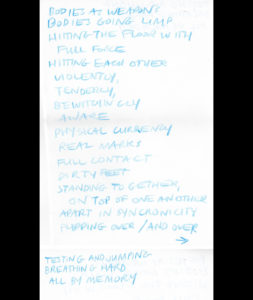 BODIES AS WEAPONS
BODIES GOING LIMP
HITTING THE FLOOR WITH
FULL FORCE
HITTING EACH OTHER
VIOLENTLY,
TENDERLY,
BEWITCHINGLY
AWARE
PHYSICAL CURRENCY
REAL MARKS
FULL CONTACT
DIRTY FEET
STANDING TOGETHER,
ON TOP OF ONE ANOTHER
APART IN SYNCRONICITY
FLIPPING OVER / AND OVER
→
TESTING AND JUMPING
BREATHING HARD
ALL BY MEMORY